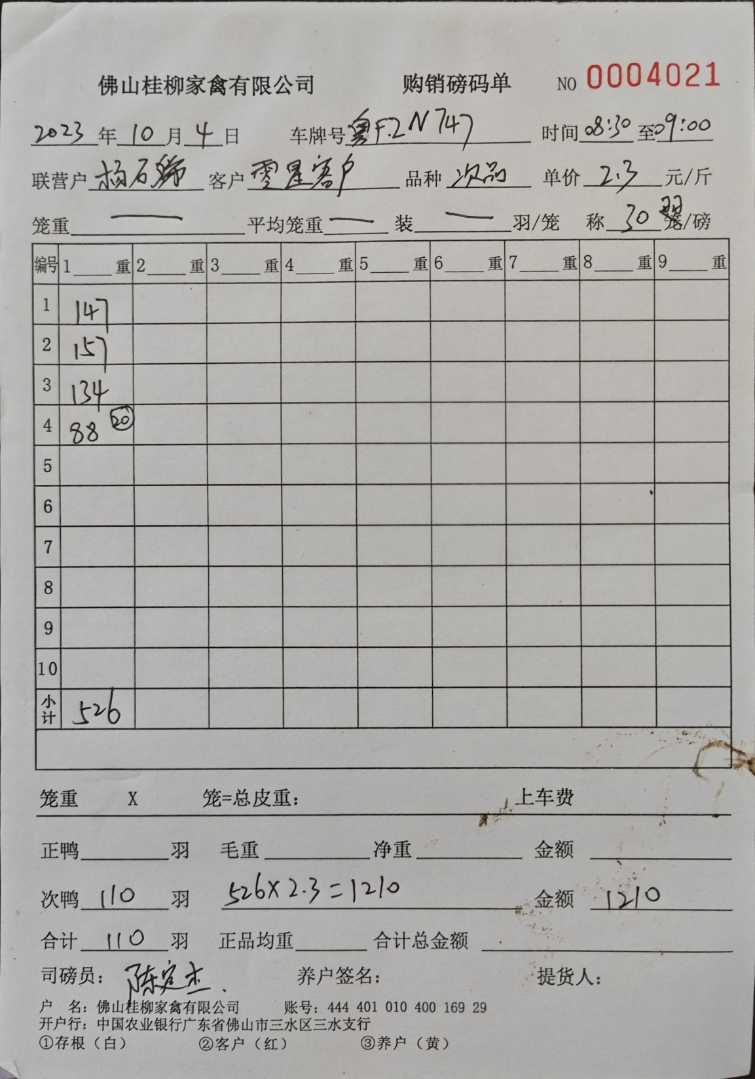 佛山桂柳家禽有限公司 购销磅码单 NO 0004021
2023年10月4日 车牌号粤F.2N747 时间08:30至09:00
联营户 客户零星客户 品种次品 单价2.3元/斤
笼重— 平均笼重— 装—羽/笼 称30羽笼/磅
编号 1____重 2____重 3____重 4____重 5____重 6____重 7____重 8____重 9____重
1 147
2 157
3 134
4 88 20
5
6
7
8
9
10
小计 526
笼重 X 笼=总皮重: 上车费
正鸭____羽 毛重____ 净重____ 金额____
次鸭110羽 526×2.3=1210 金额1210
合计110羽 正品均重____ 合计总金额____
司磅员:陈定杰. 养户签名: 提货人:
户 名:佛山桂柳家禽有限公司 账号:444 401 010 400 169 29
开户行:中国农业银行广东省佛山市三水区三水支行
①存根(白) ②客户(红) ③养户(黄)